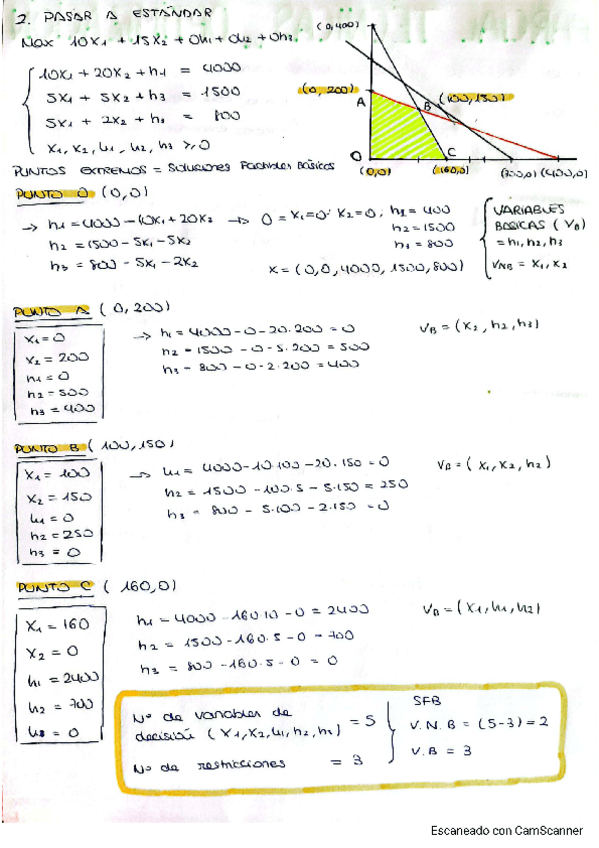 2. PASAR A ESTÁNDAR
Max 10x1 + 15x2 + 0h1 + 0h2 + 0h3
10x1 + 20x2 + h1 = 4000
5x1 + 5x2 + h3 = 1500
5x1 + 2x2 + h3 = 800
x1, x2, h1, h2, h3 ≥ 0
(0,400)
(0,200)
A
B
(100,150)
O
C
(0,0)
(160,0)
(300,0)
(400,0)
PUNTOS EXTREMOS = Soluciones Factibles Básicas
PUNTO O (0,0)
→ h1 = 4000 - 10x1 + 20x2 → 0 = x1 = 0; x2 = 0; h1 = 400
h2 = 1500 - 5x1 - 5x2
h2 = 1500
h3 = 800 - 5x1 - 2x2
h1 = 800
x = (0,0,4000,1500,800)
VARIABLES
BÁSICAS (VB)
= h1, h2, h3
VNB = x1, x2
PUNTO A (0,200)
x1 = 0
x2 = 200
h1 = 0
h2 = 500
h3 = 400
→ h1 = 4000 - 0 - 20·200 = 0
h2 = 1500 - 0 - 5·200 = 500
h3 = 800 - 0 - 2·200 = 400
VB = (x2, h2, h3)
PUNTO B (100,150)
x1 = 100
x2 = 150
h1 = 0
h2 = 250
h3 = 0
→ h1 = 4000 - 10·100 - 20·150 = 0
h2 = 1500 - 100·5 - 5·150 = 250
h3 = 800 - 5·100 - 2·150 = 0
VB = (x1, x2, h2)
PUNTO C (160,0)
x1 = 160
x2 = 0
h1 = 2400
h2 = 700
h3 = 0
h1 = 4000 - 160·10 - 0 = 2400
h2 = 1500 - 160·5 - 0 = 700
h3 = 800 - 160·5 - 0 = 0
VB = (x1, h1, h2)
Nº de variables de
decisión (x1, x2, h1, h2, h3) = 5
Nº de restricciones = 3
SFB
V.N.B = (5-3) = 2
V.B = 3
Escaneado con CamScanner